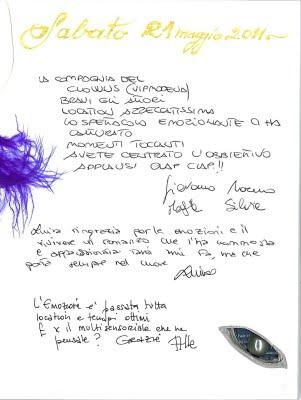 Sabato 21 maggio 2011
LA COMPAGNIA DEL
CLOWNS (VIPMODENA)
BRAVI GLI ATTORI
LOCATION AZZECCATISSIMA
LO SPETTACOLO EMOZIONANTE CI HA
CATTURATO
MOMENTI TOCCANTI
AVETE CENTRATO L'OBBIETTIVO
APPLAUSI CLAP CLAP!!
Silvia
ringrazia per le emozioni e il
rivivere un romanzo che l'ha commossa
e appassionata
sempre nel cuore
L'Emozione è passata tutta
location e tempi ottimi
E x il multisensoriale che ne
pensate? Grazie